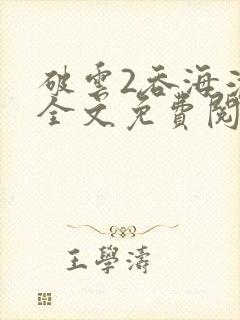 破雲2吞海
全文免費閱
王學濤